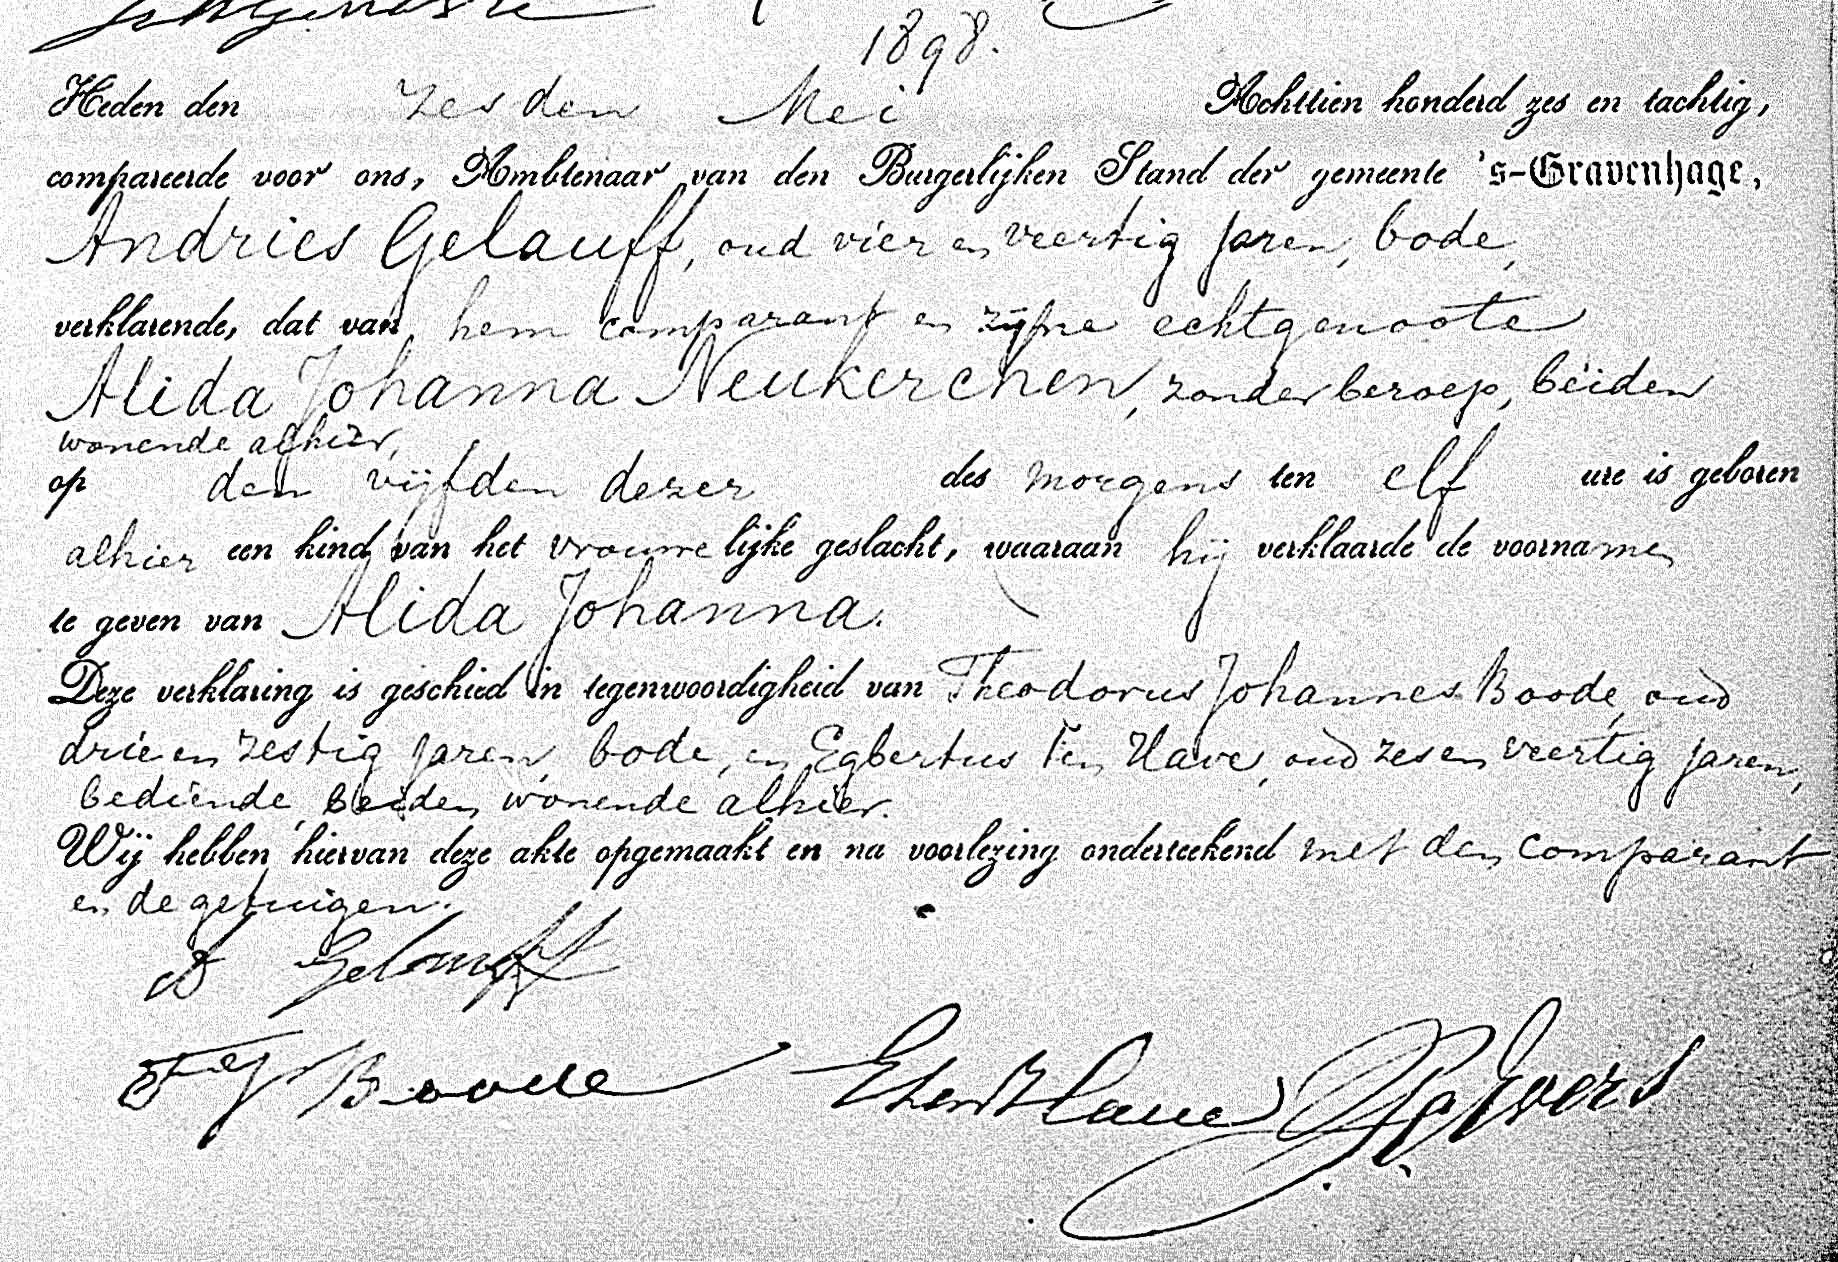 1898.
Heden den zesden Mei Achttien honderd zes en tachtig,
compareerde voor ons, Ambtenaar van den Burgerlijken Stand der gemeente 's-Gravenhage,
Andries Gelauff, oud vier en veertig jaren, bode,
verklarende, dat van hem comparant en zijne echtgenoote
Alida Johanna Neukerchen, zonder beroep, beiden
wonende alhier,
op den vijfden dezer des morgens ten elf ure is geboren
alhier een kind van het vrouwelijke geslacht, waaraan hij verklaarde de voornamen
te geven van Alida Johanna.
Deze verklaring is geschied in tegenwoordigheid van Theodorus Johannes Boode, oud
drie en zestig jaren, bode, en Egbertus Ten Have, oud zes en veertig jaren,
bediende, beiden wonende alhier.
Wij hebben hiervan deze akte opgemaakt en na voorlezing onderteekend met den comparant
en de getuigen.
A Gelauff
Th J Boode E ten Have